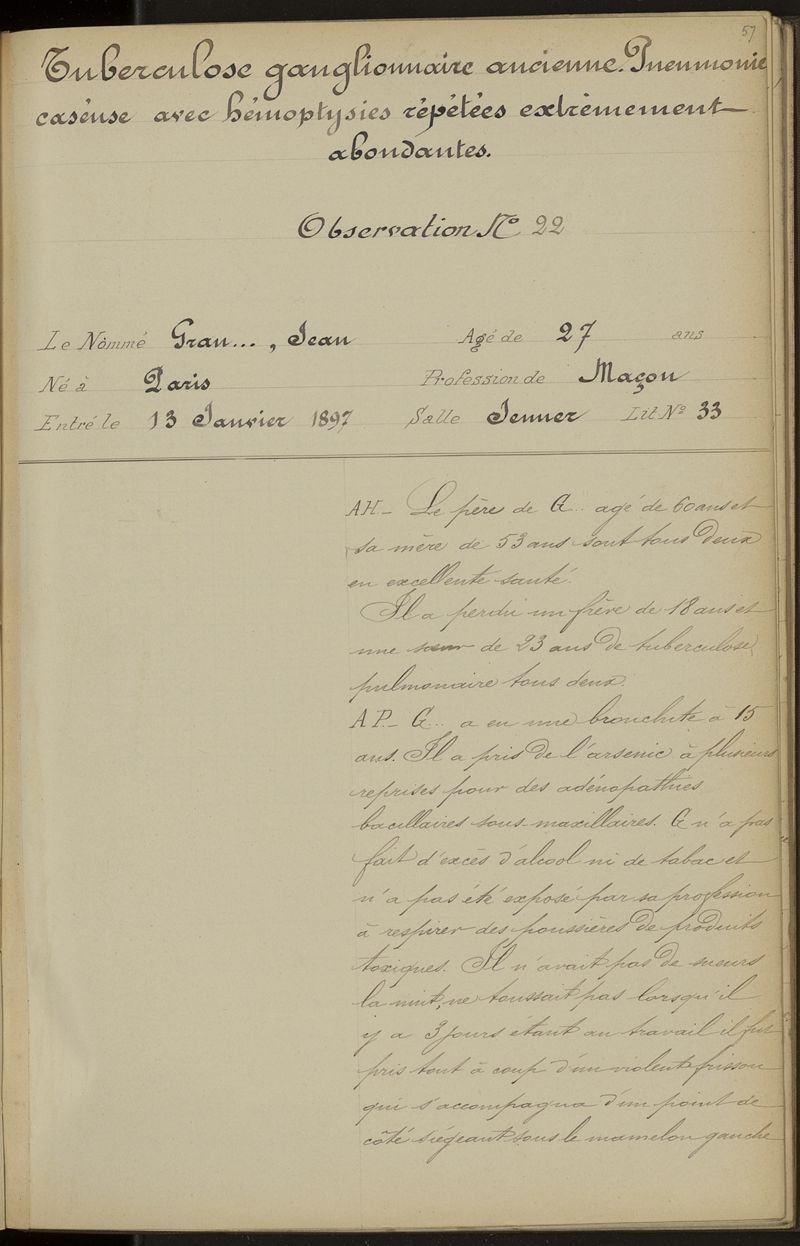 57
Tuberculose ganglionnaire ancienne. Pneumonie
caséuse avec hémoptysies répétées extrèmement
abondantes.
Observation No 22
Le Nommé Gran..., Jean Agé de 27 ans
Né à Paris Profession de Maçon
Entré le 13 Janvier 1897 Salle Jenner Lit No 33
AH_ Le père de G.. agé de 60 ans et
sa mère de 53 ans sont tous deux
en excellente santé.
Il a perdu un frère de 18 ans et
une sœur de 23 ans de tuberculose
pulmonaire tous deux.
AP_ G.. a eu une bronchite à 15
ans. Il a pris de l'arsenic à plusieurs
reprises pour des adénopathies
bacillaires sous-maxillaires. G n'a pas
fait d'excès d'alcool ni de tabac et
n'a pas été exposé par sa profession
à respirer des poussières de produits
toxiques. Il n'avait pas de sueurs
la nuit, ne toussait pas lorsqu'il
y a 3 jours étant au travail il fut
pris tout à coup d'un violent frisson
qui s'accompagna d'un point de
côté siégeant sous le mamelon gauche